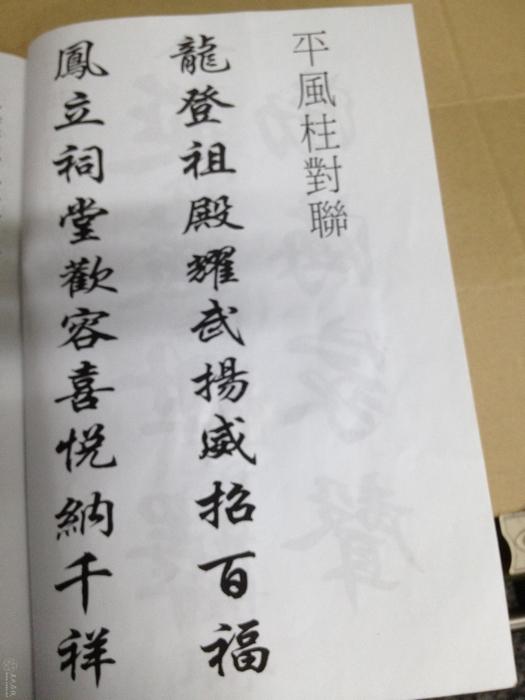 平風柱對聯
龍登祖殿耀武揚威招百福
鳳立祠堂歡容喜悅納千祥